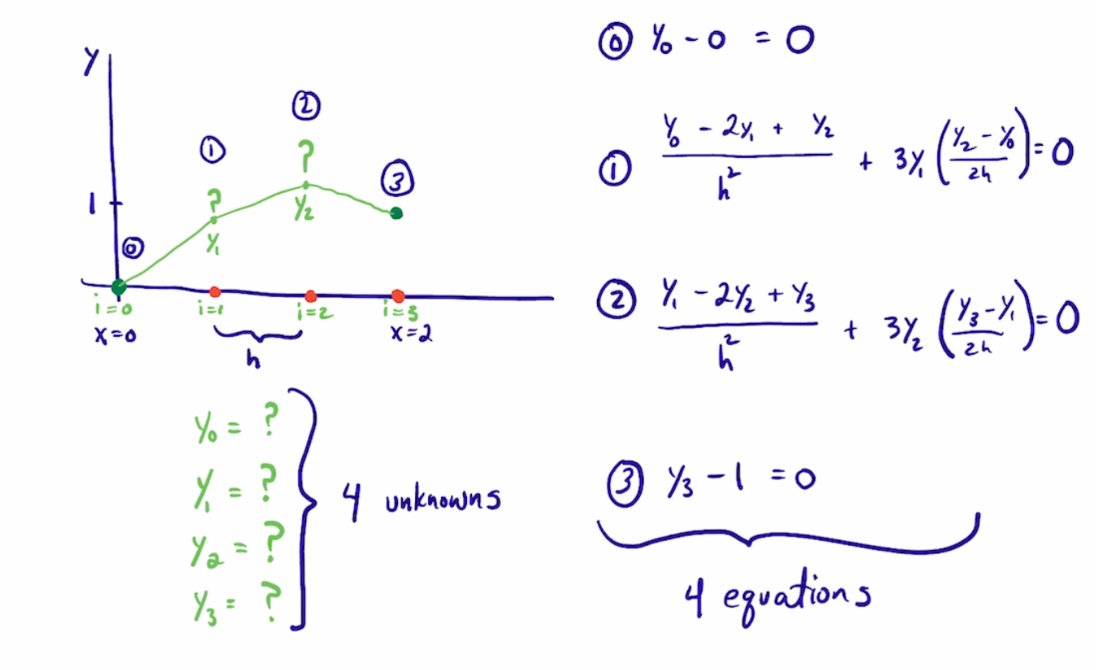 Y
②
①
?
③
?
1
Y₂
Y₁
⓪
i=0
i=1
i=2
i=3
x=0
x=2
h
Y₀ = ?
Y₁ = ?
Y₂ = ?
Y₃ = ?
4 unknowns
⓪ Y₀ - 0 = 0
① (Y₀ - 2Y₁ + Y₂)/h² + 3Y₁ ((Y₂ - Y₀)/2h) = 0
② (Y₁ - 2Y₂ + Y₃)/h² + 3Y₂ ((Y₃ - Y₁)/2h) = 0
③ Y₃ - 1 = 0
4 equations